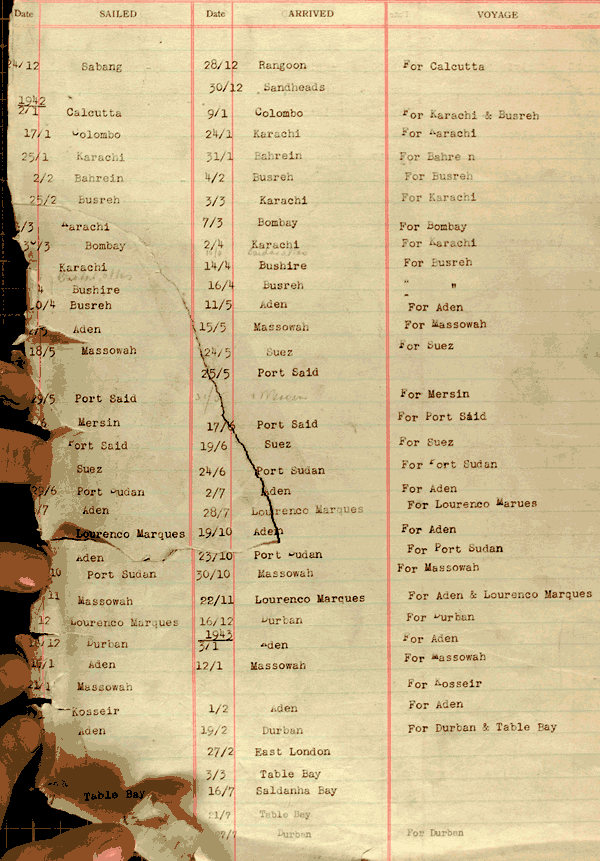 Date SAILED Date ARRIVED VOYAGE
24/12 Sabang 28/12 Rangoon For Calcutta
30/12 Sandheads
1942
2/1 Calcutta 9/1 Colombo For Karachi & Busreh
17/1 Colombo 24/1 Karachi For Karachi
25/1 Karachi 31/1 Bahrein For Bahre n
2/2 Bahrein 4/2 Busreh For Busreh
25/2 Busreh 3/3 Karachi For Karachi
/3 Karachi 7/3 Bombay For Bombay
/3 Bombay 2/4 Karachi For Karachi
Karachi 14/4 Bushire For Busreh
4 Bushire 16/4 Busreh " "
0/4 Busreh 11/5 Aden For Aden
/5 Aden 15/5 Massowah For Massowah
18/5 Massowah 24/5 Suez For Suez
25/5 Port Said
29/5 Port Said For Mersin
/6 Mersin 17/6 Port Said For Port Said
Port Said 19/6 Suez For Suez
Suez 24/6 Port Sudan For Port Sudan
29/6 Port Sudan 2/7 Aden For Aden
/7 Aden 28/7 Lourenco Marques For Lourenco Marues
Lourenco Marques 19/10 Aden For Aden
Aden 23/10 Port Sudan For Port Sudan
10 Port Sudan 30/10 Massowah For Massowah
11 Massowah 22/11 Lourenco Marques For Aden & Lourenco Marques
12 Lourenco Marques 16/12 Durban For Durban
1943
/12 Durban 3/1 Aden For Aden
/1 Aden 12/1 Massowah For Massowah
21/1 Massowah For Kosseir
Kosseir 1/2 Aden For Aden
Aden 19/2 Durban For Durban & Table Bay
27/2 East London
3/3 Table Bay
Table Bay 16/7 Saldanha Bay
21/7 Table Bay
27/7 Durban For Durban